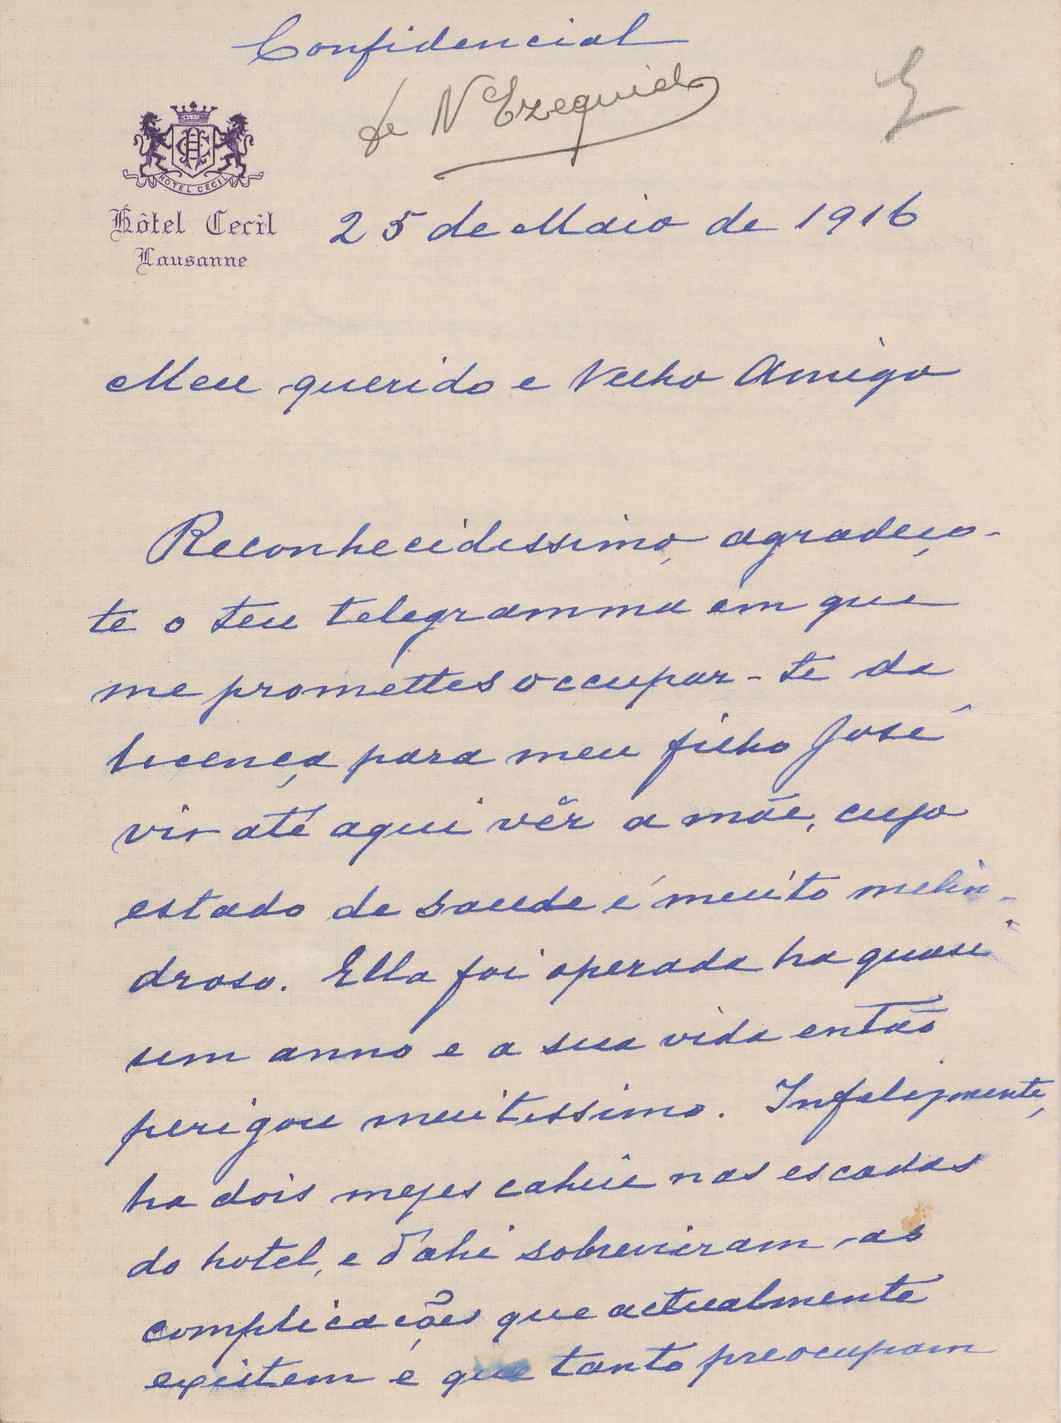 Confidencial
de N Ezequiel
HOTEL CECIL
Hôtel Cecil
Lausanne
25 de Maio de 1916
Meu querido e Velho Amigo
Reconhecidissimo, agradeço-
te o teu telegramma em que
me promettes occupar-te da
licença para meu filho José
vir até aqui vêr a mãe, cujo
estado de saude é muito melin-
droso. Ella foi operada ha quasi
um anno e a sua vida então
perigou muitissimo. Infelizmente,
ha dois mezes cahiu nas escadas
do hotel, e d'ahi sobrevieram as
complicações que actualmente
existem e que tanto preocupam